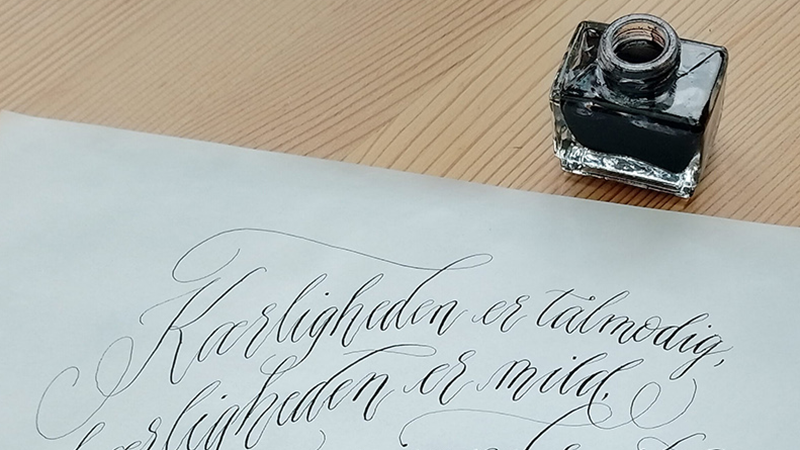 Kærligheden er tålmodig,
kærligheden er mild.